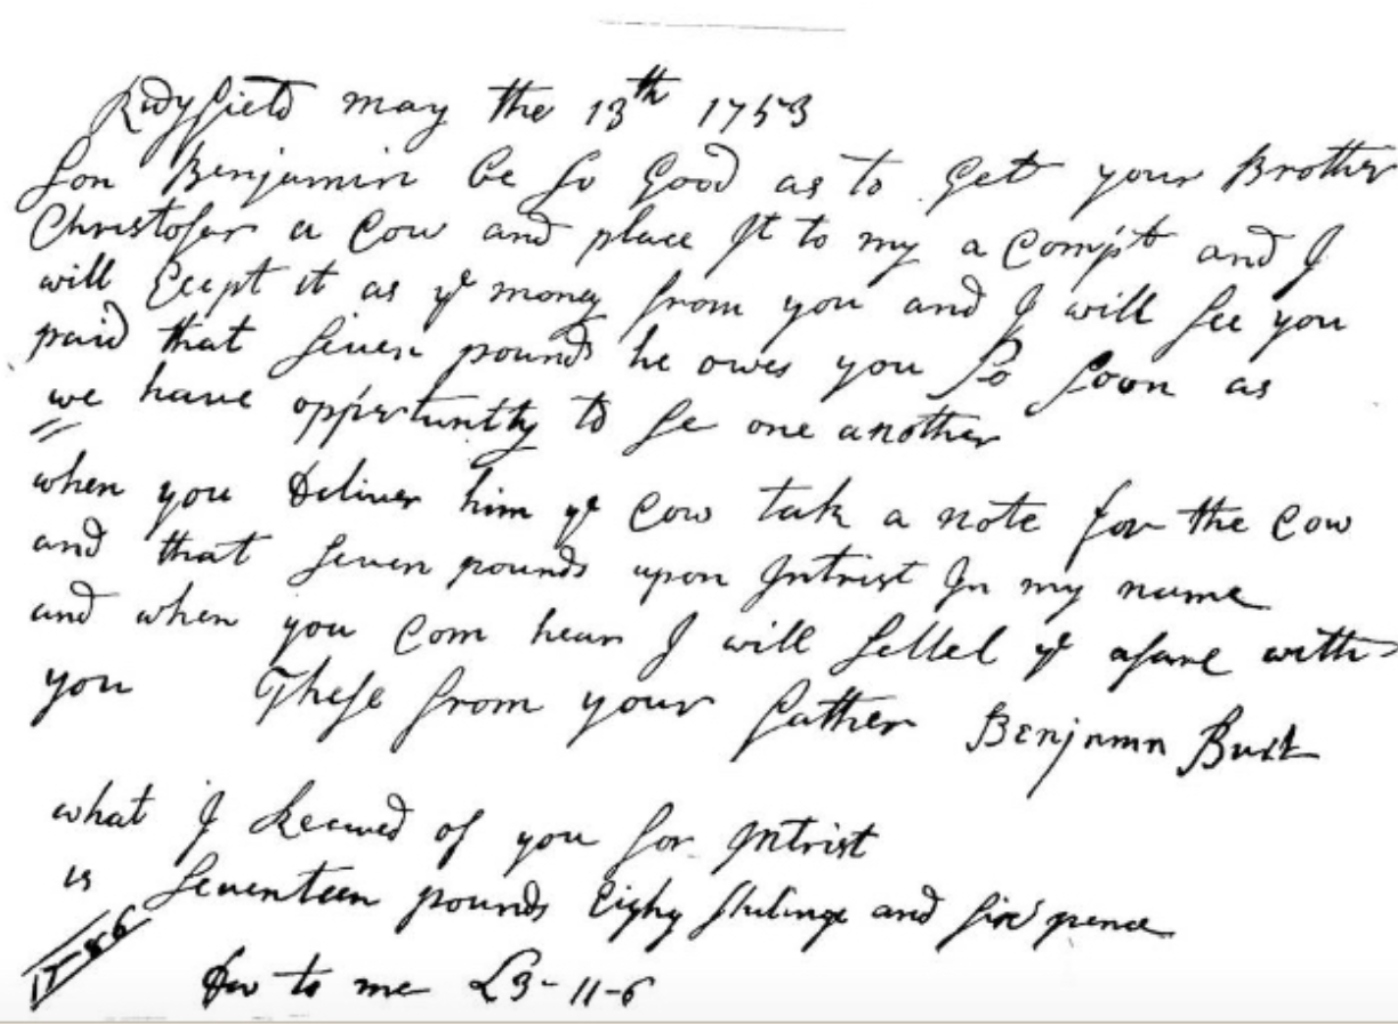 Ridgfield may the 13th 1753
Son Benjamin be so good as to get your Brother
Christofar a Cow and place It to my a Compt and I
will Ecept it as ye money from you and I will see you
paid that seuen pound he owes you so soon as
we haue oppertuntty to se one another
when you Deliuer him ye Cow tak a note for the Cow
and that seuen pounds upon Intrist In my name
and when you Com hear I will settel ye afare with
you These from your father Benjamn Burt
what I Receued of you for Intrist
is seuenteen pounds Eighy shilings and six pence
17-8-6
Due to me £3-11-6